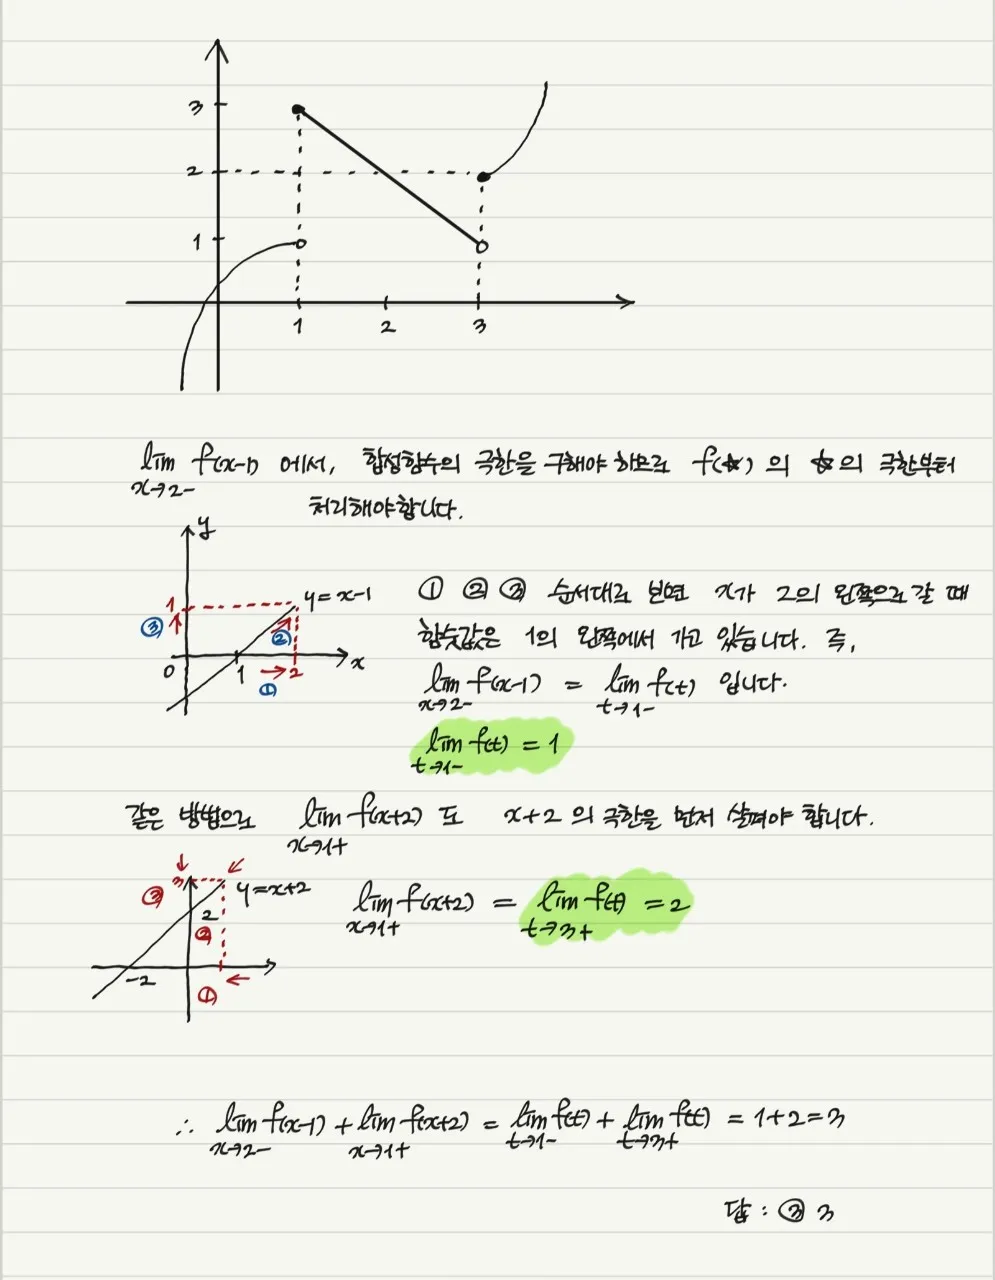 3
2
1
1 2 3
lim f(x-1) 에서, 합성함수의 극한을 구해야 하므로 f(☆) 의 ☆의 극한부터
x→2-
처리해야합니다.
y
1
③
y=x-1
②
0 1 →2 x
①
① ② ③ 순서대로 보면 x가 2의 왼쪽으로 갈 때
함숫값은 1의 왼쪽에서 가고 있습니다. 즉,
lim f(x-1) = lim f(t) 입니다.
x→2- t→1-
lim f(t) = 1
t→1-
같은 방법으로 lim f(x+2) 도 x+2 의 극한을 먼저 살펴야 합니다.
x→1+
3
③
y=x+2
2
②
-2
①
lim f(x+2) = lim f(t) = 2
x→1+ t→3+
∴ lim f(x-1) + lim f(x+2) = lim f(t) + lim f(t) = 1+2=3
x→2- x→1+ t→1- t→3+
답 : ③ 3